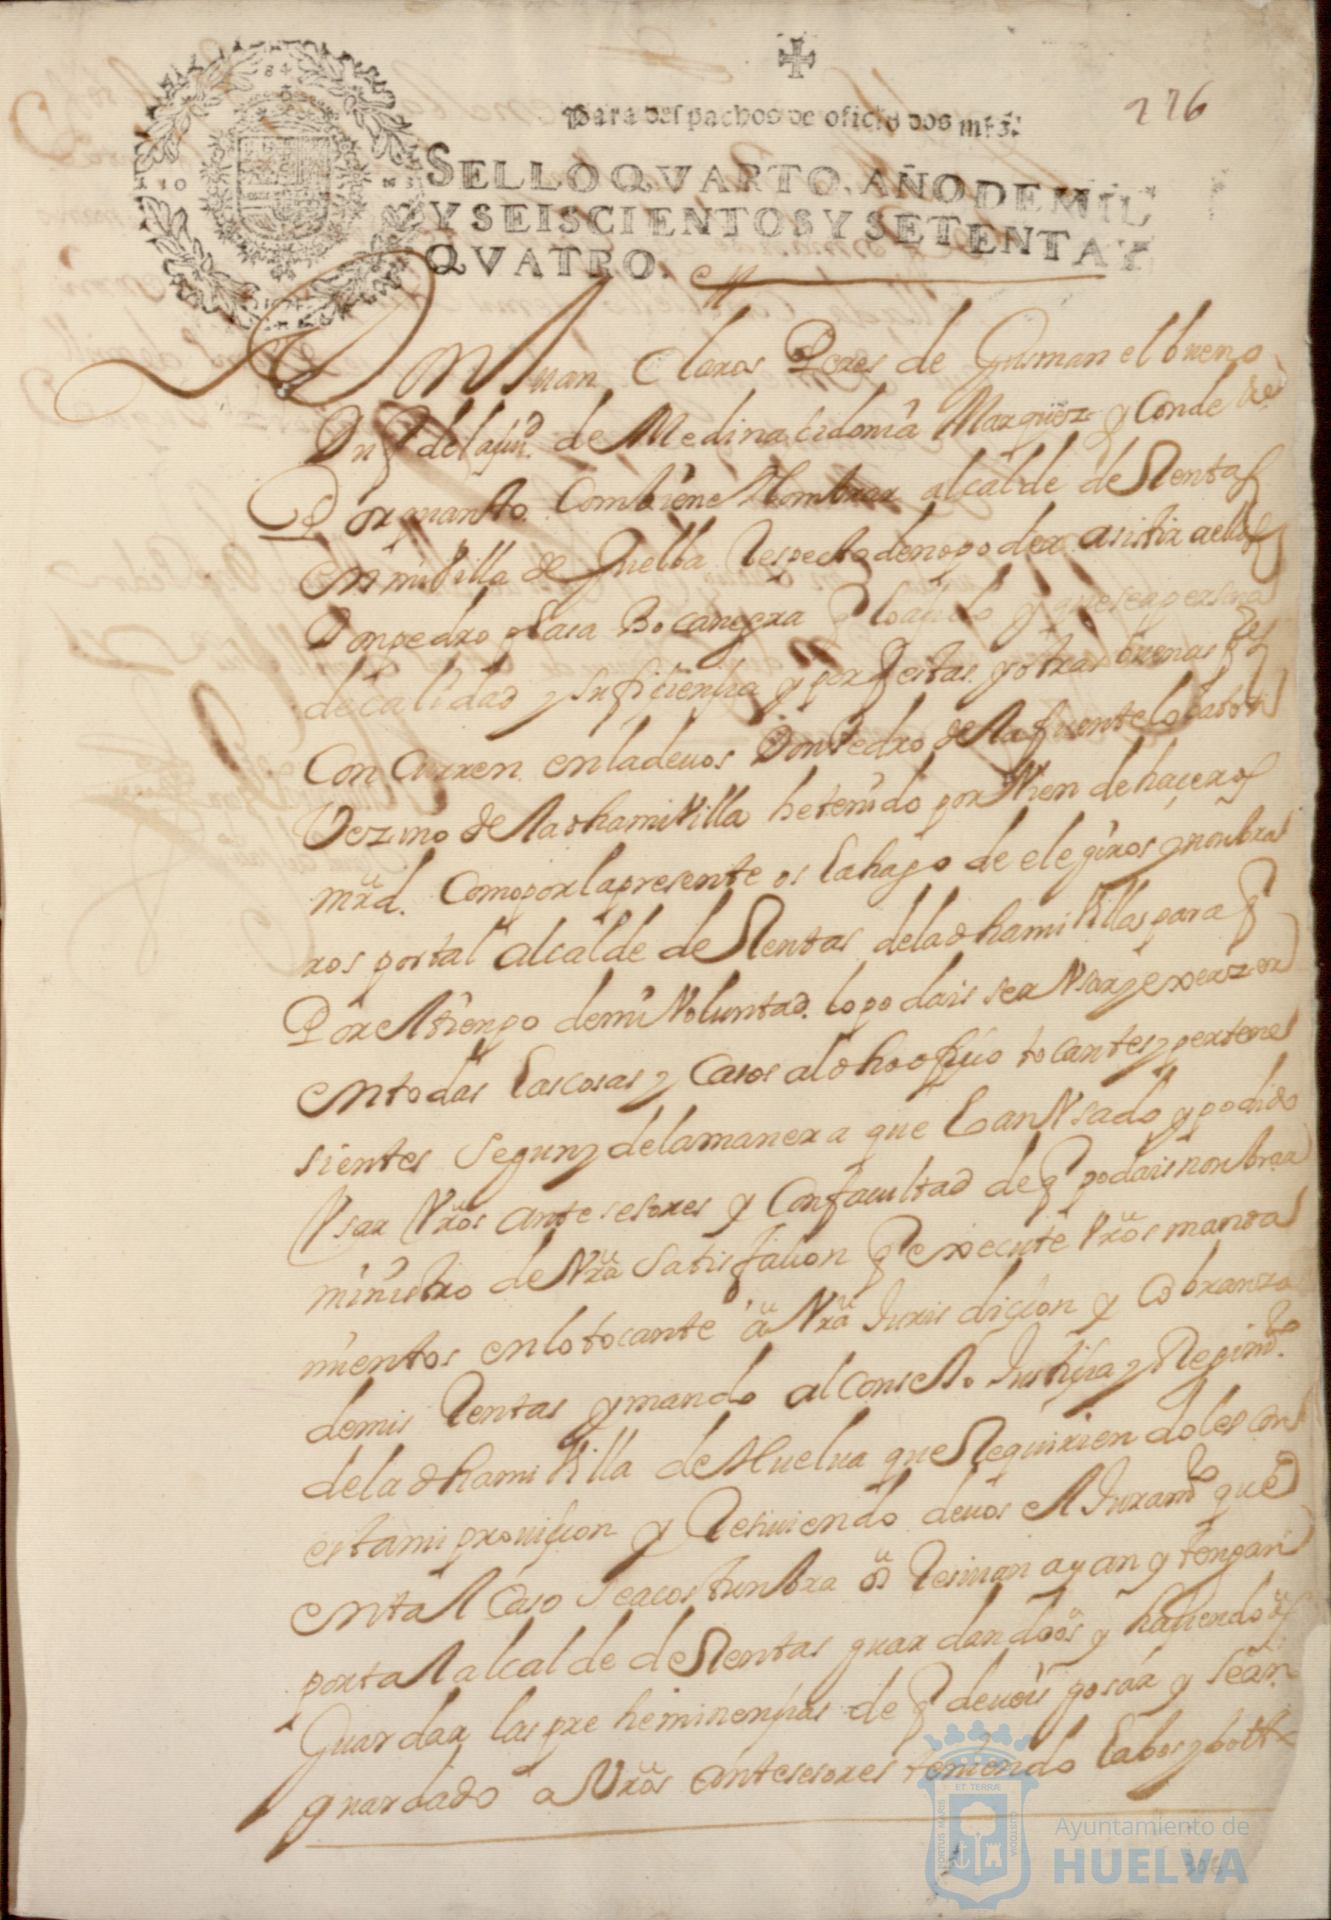 276
Para despachos de oficio dos mrs.
SELLO QVARTO, AÑO DE MIL
Y SEISCIENTOS Y SETENTA Y
QVATRO.
Don Juan Claros Peres de Gusman el bueno
Duq de la çiud de Medina cidonia Marquez y Conde &c
Por quanto Combiene Nombrar alcalde de Rentas
en mi Villa de Huelba Respecto de no poder asistir a ellas
Don pedro Bocanegra q lo a sido y que sea persona
de calidad y sufiçiençia y por q estas y otras buenas ptes
Concurren en la de vos Don Pedro de la fuente
Vezino de la dha mi Villa he tenido por bien de haçeros
mrd. Como por la presente os la hago de elegiros y nonbra
ros por tal alcalde de Rentas de la dha mi Villa para q
Por el tienpo de mi Voluntad. lo podais ser Vsar y exerzer
en todas las cosas y Casos al dho ofiçio tocantes y pertene
sientes segun y de la manera que lo an Vsado y podido
Vsar Vros antesesores y Con facultad de q podais nonbrar
ministro de Vra satisfaçion q execute Vros manda
mientos en lo tocante a Vra Jurisdiçion y Cobranza
de mis Rentas y mando al Consejo Justiçia y Regimto
de la dha mi Villa de Huelua que Requiriendoles con
esta mi prouiçion y Resiuiendo de uos el Juramto que
en tal Caso se acostunbra os Resiuan ayan y tengan
por tal alcalde de Rentas guardandoos y haçiendo os
Guardar las pre heminençias de q deueis gosar y se an
guardado a Vros antesesores teniendo
PORTUS MARIS
ET TERRÆ
CUSTODIA
Ayuntamiento de
HUELVA